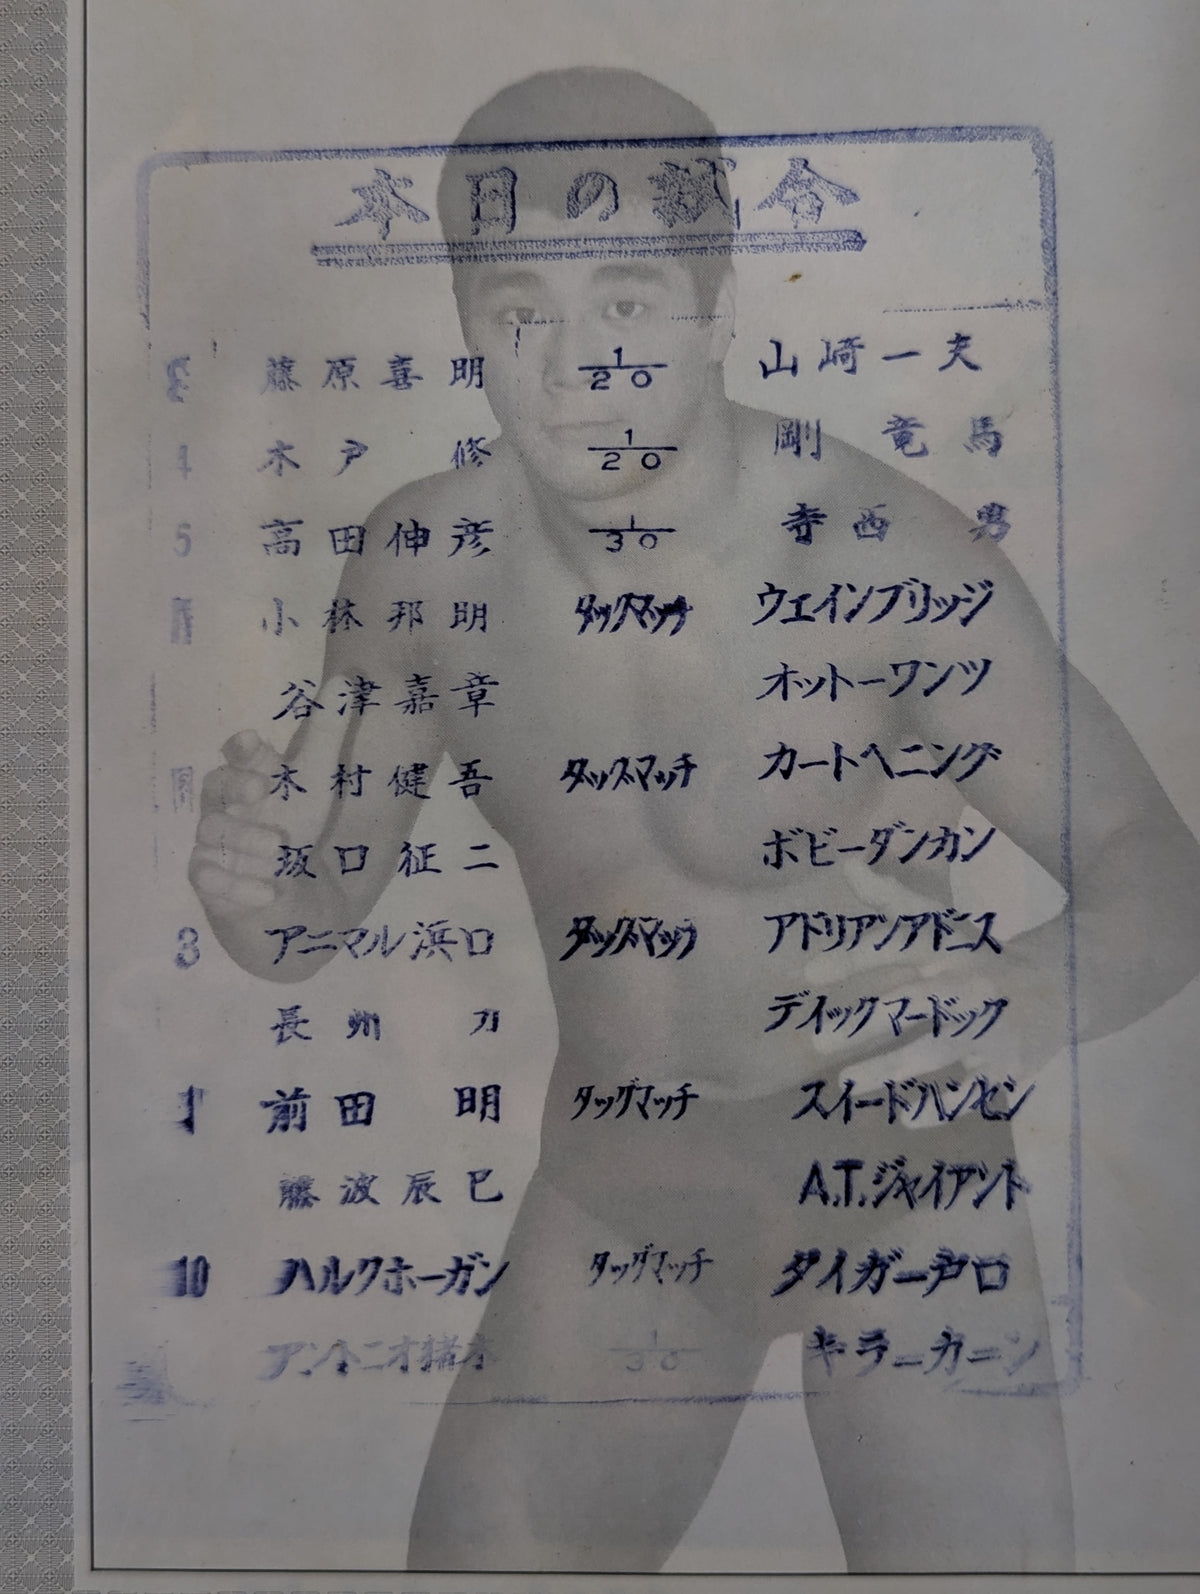 本日の試合
3 藤原喜明 1/20 山崎一夫
4 木戸修 1/20 剛竜馬
5 高田伸彦 1/30 寺西勇
小林邦明 タッグマッチ ウエインブリッジ
谷津嘉章 オットーワンツ
木村健吾 タッグマッチ カートヘニング
坂口征二 ボビーダンカン
8 アニマル浜口 タッグマッチ アドリアンアドニス
長州力 デイックマードック
前田明 タッグマッチ スイードハンセン
藤波辰巳 A.T.ジャイアント
10 ハルクホーガン タッグマッチ タイガー戸口
アントニオ猪木 1/30 キラーカーン